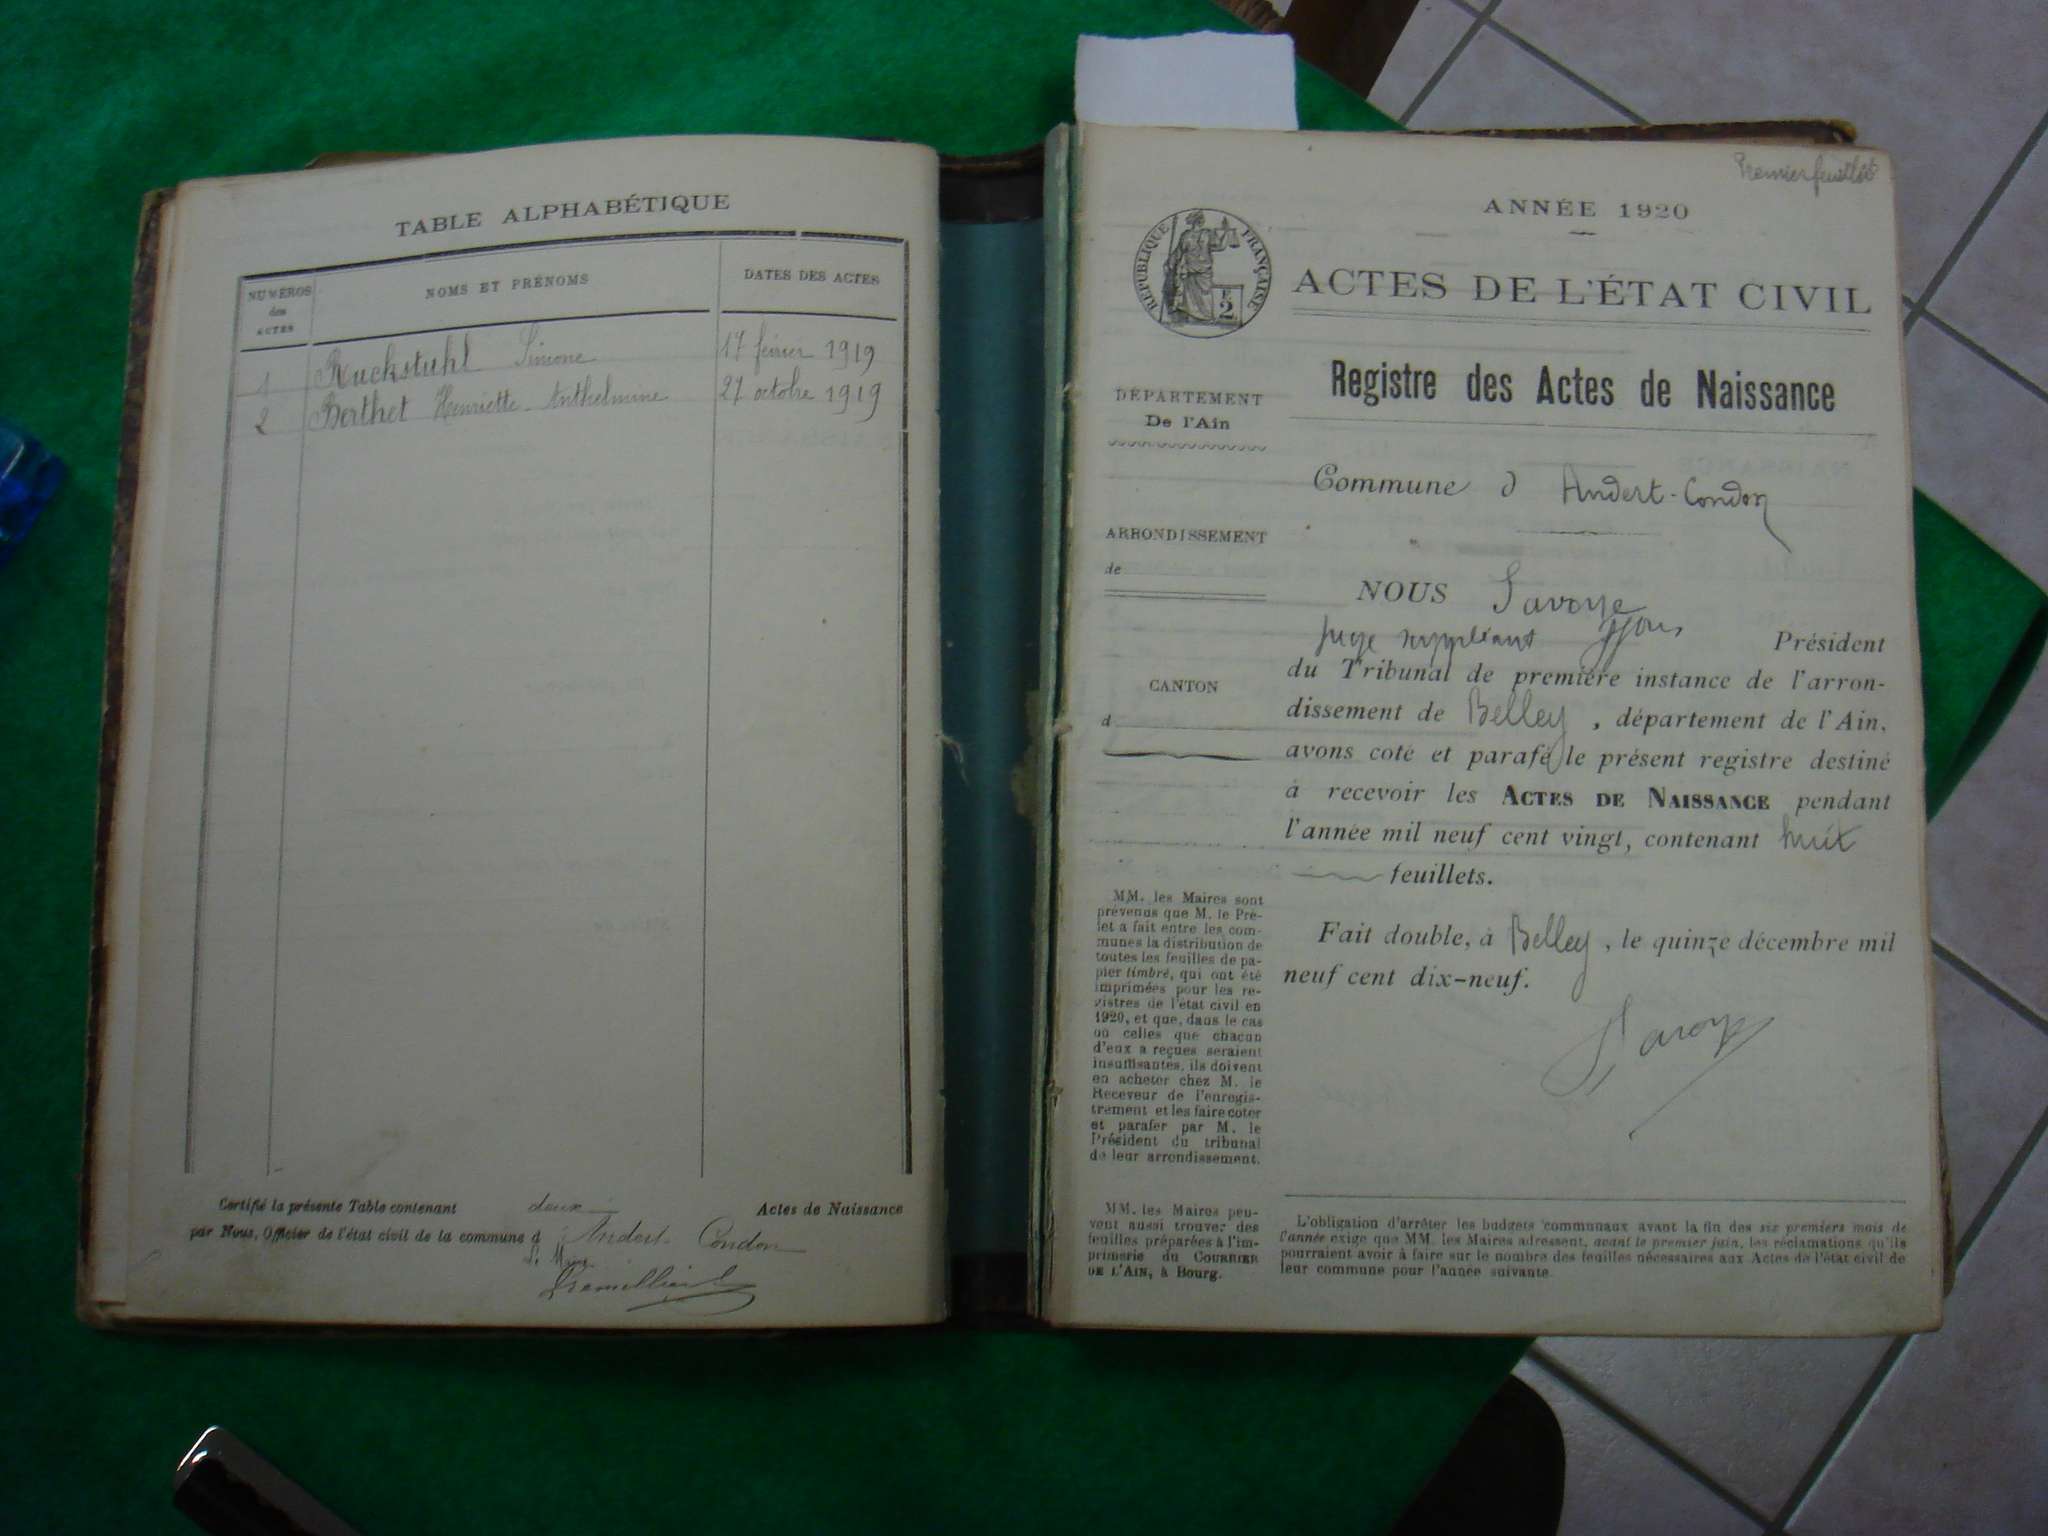 TABLE ALPHABÉTIQUE
NUMÉROS des ACTES
NOMS ET PRÉNOMS
DATES DES ACTES
1 Ruckstuhl Simone 17 février 1919
2 Berthet Henriette Anthelmine 27 octobre 1919
Certifié la présente Table contenant deux Actes de Naissance
par Nous, Officier de l'état civil de la commune d Andert Condon
Le Maire
Premier feuillet
ANNÉE 1920
RÉPUBLIQUE FRANÇAISE
2
ACTES DE L'ÉTAT CIVIL
Registre des Actes de Naissance
DÉPARTEMENT
De l'Ain
Commune d Andert-Condon
ARRONDISSEMENT
de
CANTON
d
NOUS Savoye
Juge suppléant Président
du Tribunal de première instance de l'arron-
dissement de Belley, département de l'Ain,
avons coté et parafé le présent registre destiné
à recevoir les ACTES DE NAISSANCE pendant
l'année mil neuf cent vingt, contenant huit
feuillets.
Fait double, à Belley, le quinze décembre mil
neuf cent dix-neuf.
Savoye
MM. les Maires sont
prévenus que M. le Pré-
fet a fait entre les com-
munes la distribution de
toutes les feuilles de pa-
pier timbré, qui ont été
imprimées pour les re-
gistres de l'état civil en
1920, et que, dans le cas
où celles que chacun
d'eux a reçues seraient
insuffisantes, ils doivent
en acheter chez M. le
Receveur de l'enregis-
trement et les faire coter
et parafer par M. le
Président du tribunal
de leur arrondissement.
MM. les Maires peu-
vent aussi trouver des
feuilles préparées à l'im-
primerie du COURRIER
DE L'AIN, à Bourg.
L'obligation d'arrêter les budgets communaux avant la fin des six premiers mois de
l'année exige que MM. les Maires adressent, avant le premier juin, les réclamations qu'ils
pourraient avoir à faire sur le nombre des feuilles nécessaires aux Actes de l'état civil de
leur commune pour l'année suivante.